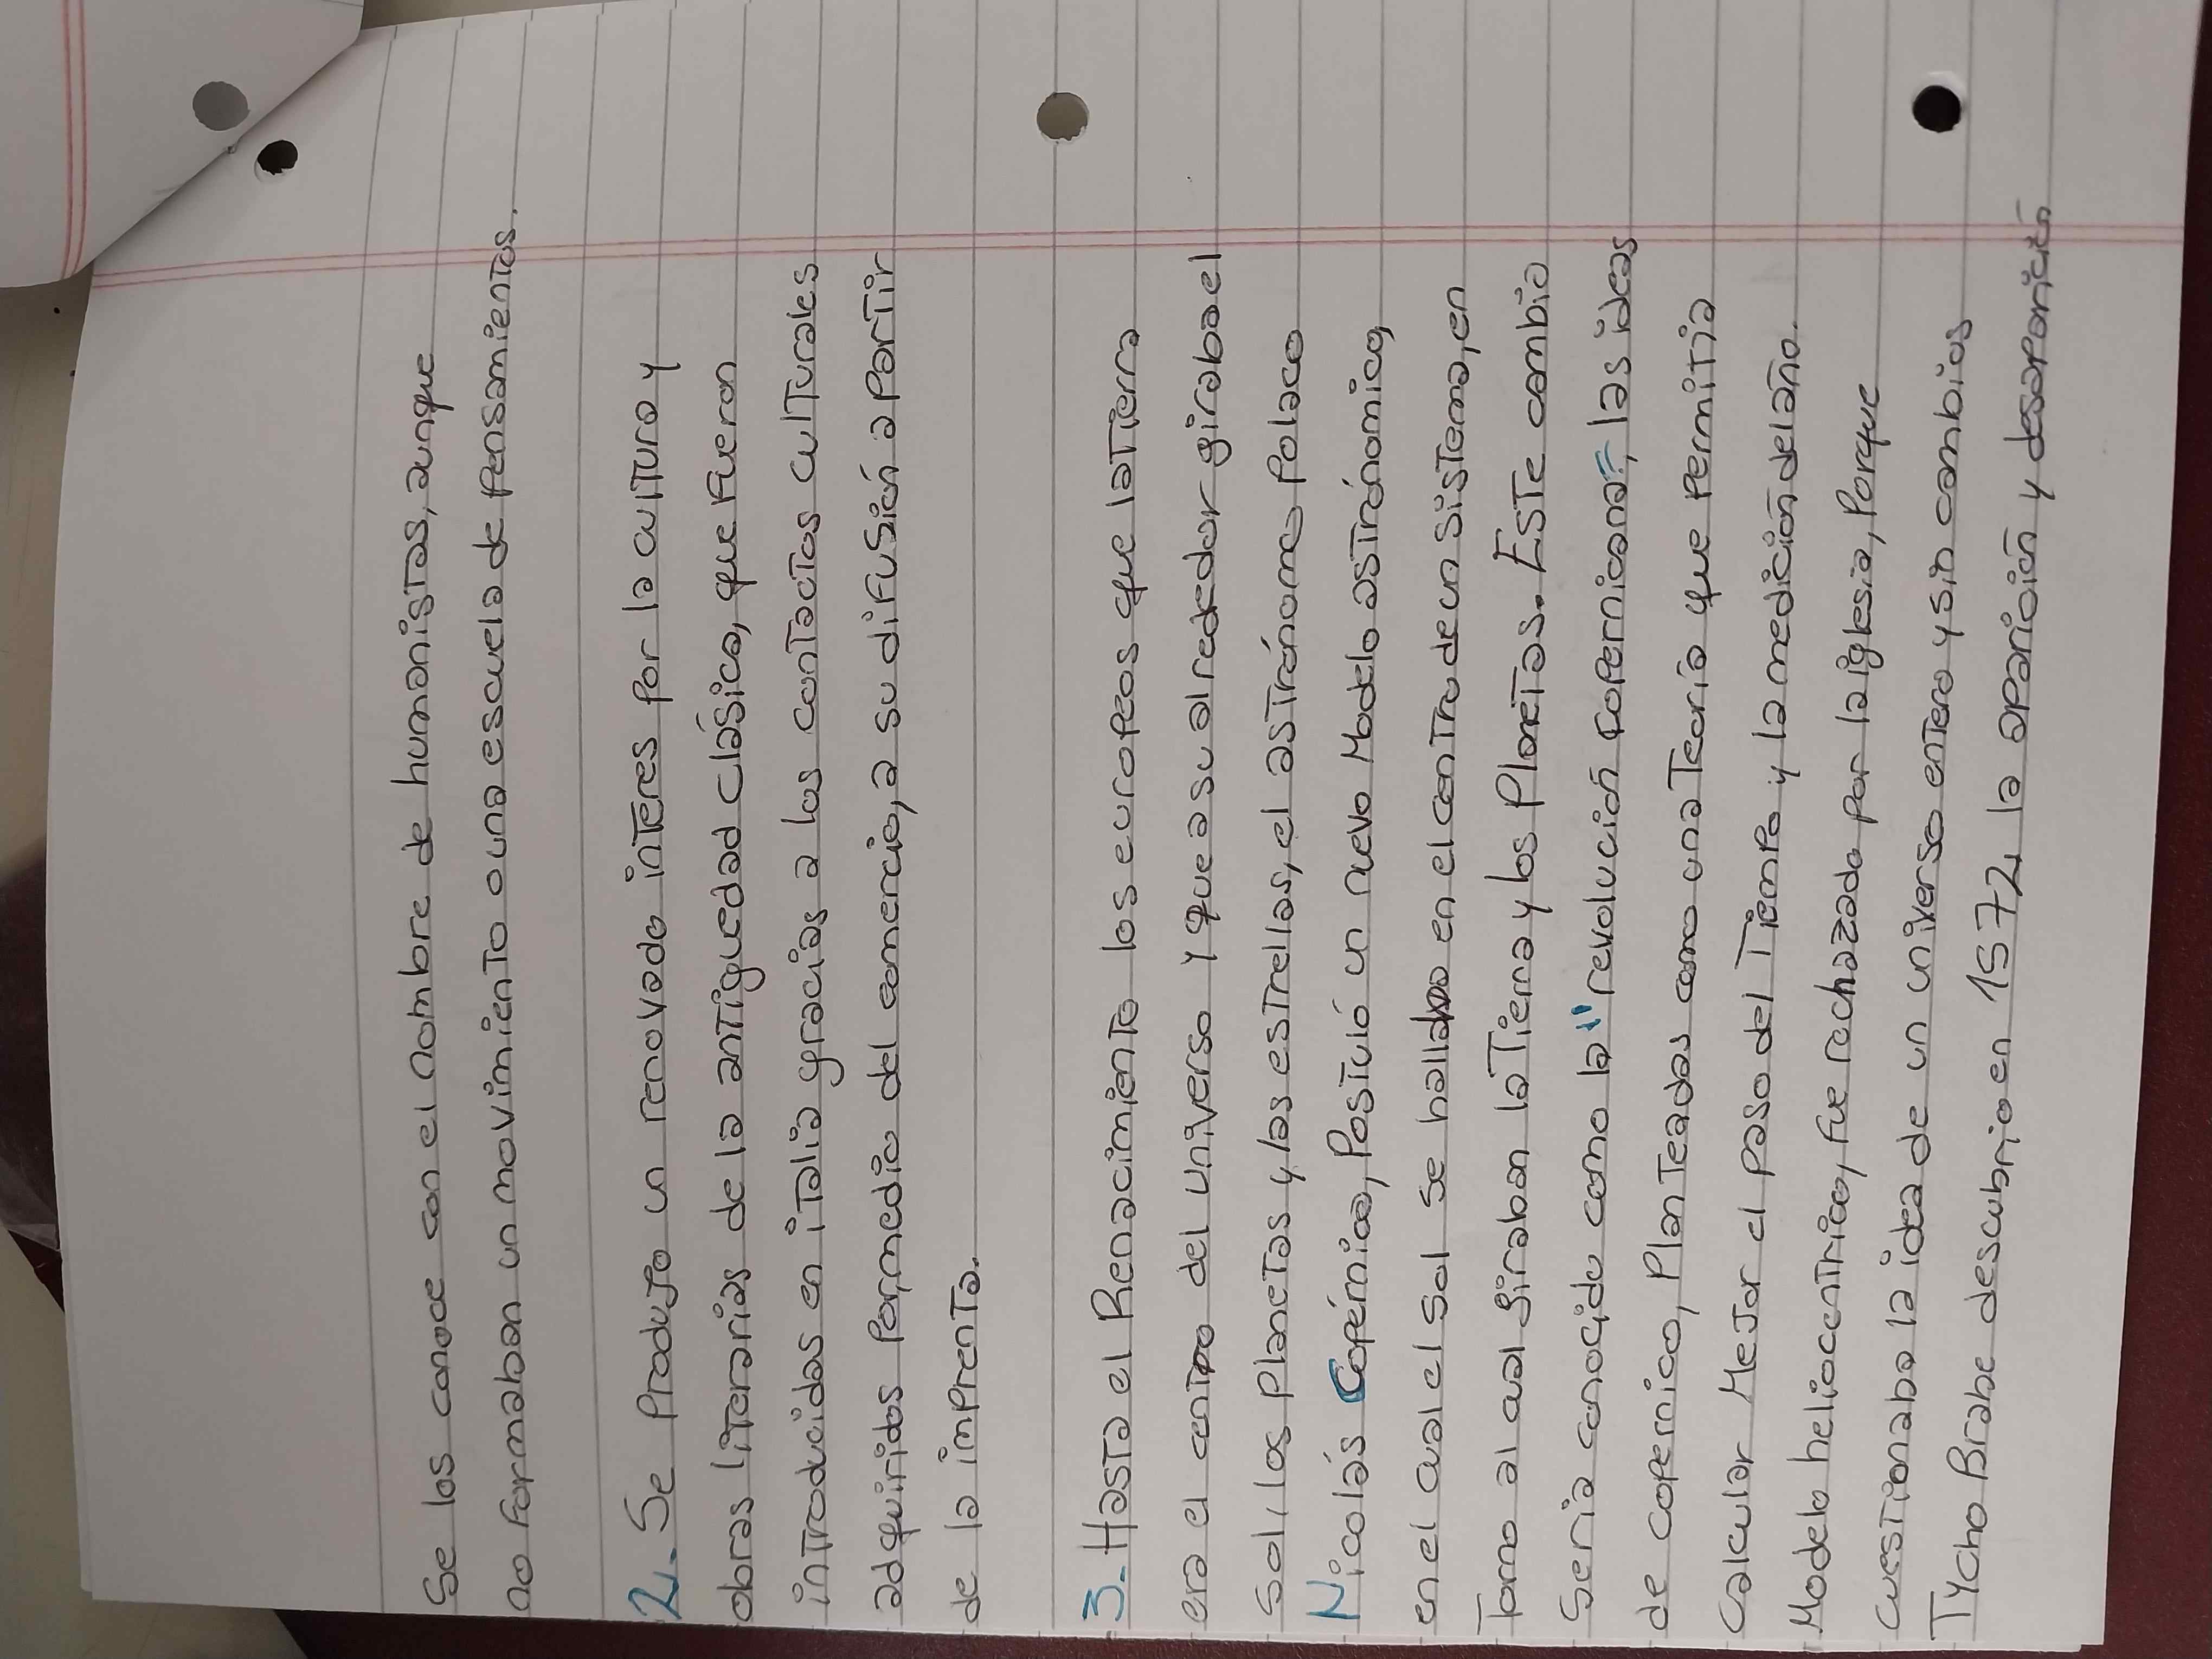 Se los conoce con el nombre de humanistas, aunque
no formaban un movimiento o una escuela de pensamientos.
2. Se Produjo un renovado interes por la cultura y
obras literarias de la antiguedad clásica, que fueron
introducidas en italia gracias a los contactos culturales
adquiridos pormedio del comercio, a su difusión a partir
de la imprenta.
3. Hasta el Renacimiento los europeos que la tierra
era el centro del universo Y que a su alrededor giraba el
Sol, los planetas y las estrellas, el astrónomo polaco
Nicolás Copérnico, Postuló un nuevo Modelo astrónomico,
en el cual el sol se hallaba en el centro de un sistema, en
Torno al cual giraban la Tierra y los Planetas. Este cambio
Seria conocido como la "revolución copernicana", las ideas
de copernico, Planteadas como una Teoría que permitia
Calcular Mejor el paso del Tiempo y la medición del año.
Modelo heliocentrico, fue rachazado por la iglesia, Porque
cuestionaba la idea de un universo entero y sin cambios
Tycho Brahe descubrio en 1572, la aparición y desaparición